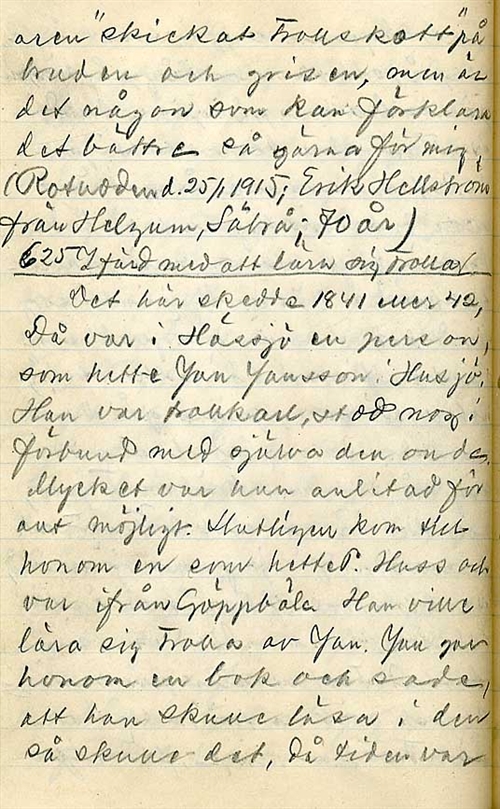 aren "skickat Trollskott" på
bruden och grisen, men är
det någon som kan förklara
det bättre så gärna för mig.
(Rotnäden d. 25/1 1915; Erik Hellström
från Helgum, Säbrå; 70 år)
625 I färd med att lära sig trolla.
Det här skedde 1841 eller 42,
Då var i Hässjö en person,
som hette Jan Jansson i Husjö.
Han var trollkarl, stod nog i
förbund med själva den onde.
Mycket var han anlitad för
allt möjligt. Slutligen kom till
honom en som hette P. Huss och
var ifrån Göppbäla. Han ville
lära sig Trolla av Jan. Jan gav
honom en bok och sade,
att han skulle läsa i den
så skulle det, då tiden var